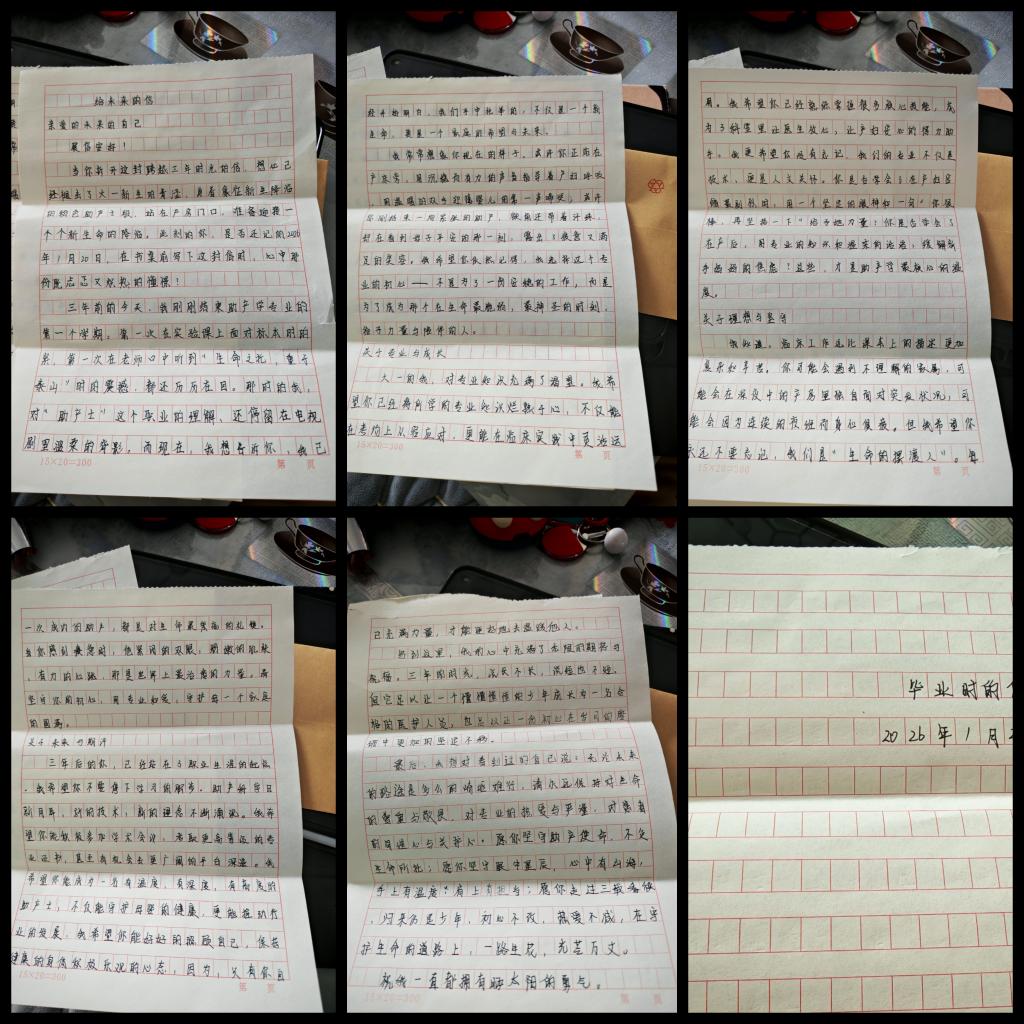 给未来的信
亲爱的未来的自己
展信安好!
当你拆开这封跨越三年时光的信,想必已
经褪去了大一新生的青涩,身着象征新生降临
的粉色助产士服,站在产房门口,准备迎接一
个个新生命的降临。此刻的你,是否还记的2026
年1月20日,在书桌前写下这封信时,心中那
份既忐忑又炽热的憧憬?
三年前的今天,我刚刚结束助产学专业的
第一个学期。第一次在实验课上面对标本时的
紧,第一次在老师口中听到"生命之托,重于
泰山"时的震撼,都还历历在目。那时的我,
对"助产士"这个职业的理解,还停留在电视
剧里温柔的身影。而现在,我想告诉你,我已
15×20=300
第 页
经开始明白,我们手中托举的,不仅是一个新
生命,更是一个家庭的希望与未来。
我常常想象你现在的样子。或许你正站在
产床旁,用沉稳有力的声音指导着产妇呼吸
,用温暖的双手迎接婴儿的第一声啼哭;或许
你刚结束一场紧张的助产,额角还带着汗珠,
却在看到母子平安的那一刻,露出了疲惫又满
足的笑容。我希望你依然记得,我选择这个专
业的初心——不是为了一份安稳的工作,而是
为了成为那个在生命最脆弱、最神圣的时刻,
给予力量与陪伴的人。
关于专业与成长
大一的我,对专业知识充满了渴望。我希
望你已经将所学的专业知识烂熟于心,不仅能
在考场上从容应对,更能在临床实践中灵活运
15×20=300
第 页
用。我希望你已经熟练掌握很多核心技能,成
为了科室里让医生放心,让产妇安心的得力助
手。我更希望你没有忘记,我们的专业不仅是
技术,更是人文关怀。你是否学会了在产妇宫
缩最剧烈时,用一个坚定的眼神和一句"你很
棒,再坚持一下"给予她力量?你是否学会了
在产后,用专业的知识和温柔的话语,缓解新
手妈妈的焦虑?这些,才是助产学最核心的温
度。
关于理想与坚守
我知道,临床工作远比课本上的描述更加
复杂和辛苦。你可能会遇到不理解的家属,可
能会在深夜中的产房里独自面对突发状况,可
能会因为连续的夜班而身心俱疲。但我希望你
永远不要忘记,我们是"生命的摆渡人"。每
15×20=300
第 页
一次成功的助产,都是对生命最崇高的礼赞。
当你感到疲惫时,想想闭的双眼,稍微的肌肤
,有力的心跳,那是世界上最治愈的力量。请
坚守你的初心,用专业和爱,守护每一个家庭
的圆满。
关于未来与期许
三年后的你,已经站在了职业生涯的起点
。我希望你不要停下学习的脚步。助产科学日
新月异,新的技术,新的理念不断涌现。我希
望你能积极参加学术会议,考取更高层次的专
业证书,甚至有机会去更广阔的平台深造。我
希望你能成为一名有温度,有深度,有高度的
助产士,不仅能守护母婴的健康,更能推动行
业的发展。我希望你能好好的照顾自己,保持
健康的身体和放乐观的心态,因为,只有你自
15×20=300
第 页
己充满力量,才能更好地去温暖他人。
写到这里,我的心中充满了无限的期待与
祝福。三年的时光,说长不长,说短也不短,
但它足以让一个懵懵懂懂的少年成长为一名合
格的医护人员,也足以让一份初心在岁月的磨
砺中更加的坚定不移。
最后,我想对看到这的自己说:无论未来
的路途是多么的崎岖难行,请永远保持对生命
的尊重与敬畏,对专业的热爱与严谨,对患者
的同理心与关怀心。愿你坚守助产使命,不负
生命所托;愿你坚守眼中星辰,心中有山海,
手上有温度,肩上有担当;愿你走过三载春秋
,归来仍是少年,初心不改,热爱不减,在守
护生命的道路上,一路生花,光芒万丈。
祝我一直都拥有晒太阳的勇气。
15×20=300
第 页
毕业时的
2026年1月2